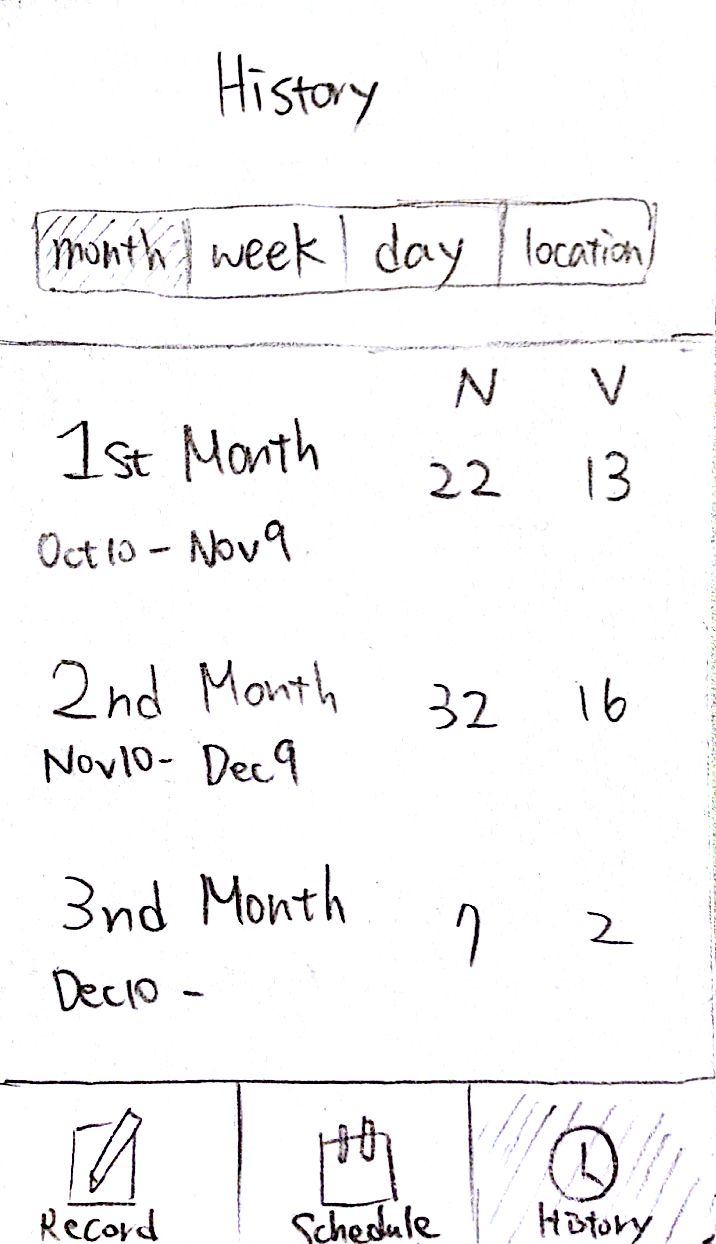 History
month week day location
N V
1st Month 22 13
Oct10 - Nov9
2nd Month 32 16
Nov10- Dec9
3nd Month 7 2
Dec10 -
Record Schedule History